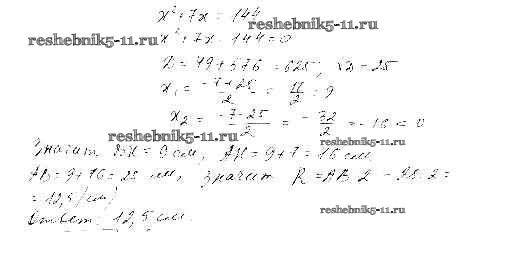 x² + 7x = 144
reshebnik5-11.ru
reshebnik5-11.ru
x² + 7x - 144 = 0
D = 49 + 576 = 625, √D = 25
x₁ = (-7 + 25)/2 = 18/2 = 9
x₂ = (-7 - 25)/2 = -32/2 = -16 < 0
reshebnik5-11.ru
reshebnik5-11.ru
Значит BH = 9 см, AH = 9 + 7 = 16 см
AB = 9 + 16 = 25 см, значит R = AB : 2 = 25 : 2 =
= 12,5 (см)
Ответ: 12,5 см.
reshebnik5-11.ru